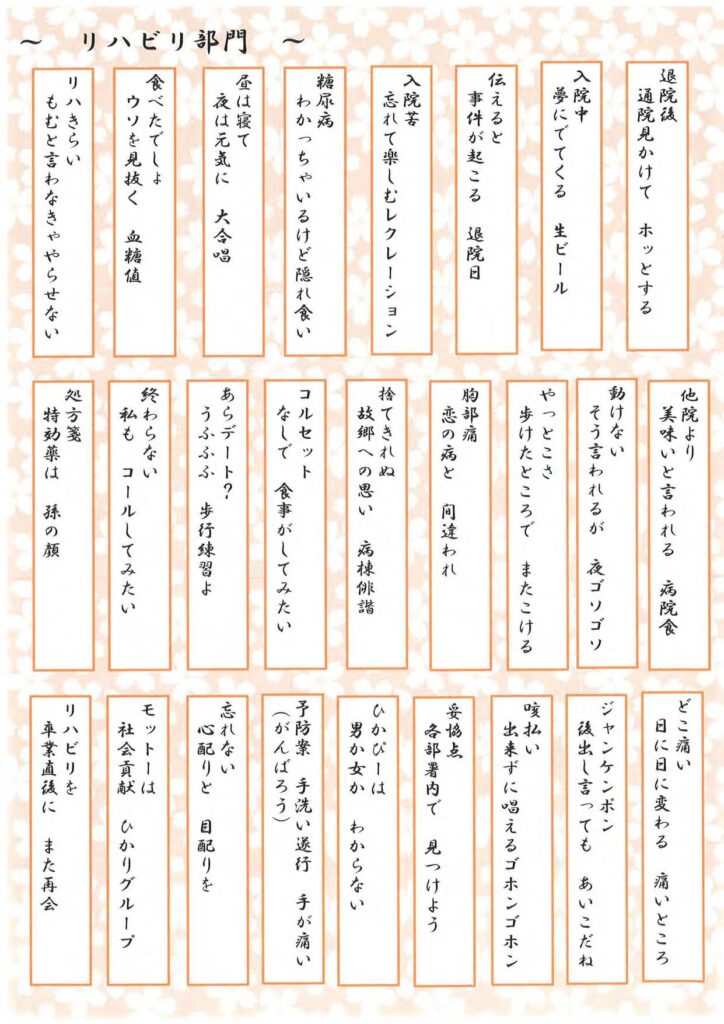 ～　リハビリ部門　～
退院後
通院見かけて　ホッとする
入院中
夢にでてくる　生ビール
伝えると
事件が起こる　退院日
入院苦
忘れて楽しむレクレーション
糖尿病
わかっちゃいるけど隠れ食い
昼は寝て
夜は元気に　大合唱
食べたでしょ
ウソを見抜く　血糖値
リハきらい
もむと言わなきゃやらせない
他院より
美味いと言われる　病院食
動けない
そう言われるが　夜ゴソゴソ
やっとこさ
歩けたところで　またこける
胸部痛
恋の病と　間違われ
捨てきれぬ
故郷への思い　病棟俳諧
コルセット
なしで　食事がしてみたい
あらデート？
うふふふ　歩行練習よ
終わらない
私も　コールしてみたい
処方箋
特効薬は　孫の顔
どこ痛い
日に日に変わる　痛いところ
ジャンケンポン
後出し言っても　あいこだね
咳払い
出来ずに唱えるゴホンゴホン
妥協点
各部署内で　見つけよう
ひかぴーは
男か女か　わからない
予防案　手洗い遂行　手が痛い
（がんばろう）
忘れない
心配りと　目配りを
モットーは
社会貢献　ひかりグループ
リハビリを
卒業直後に　また再会